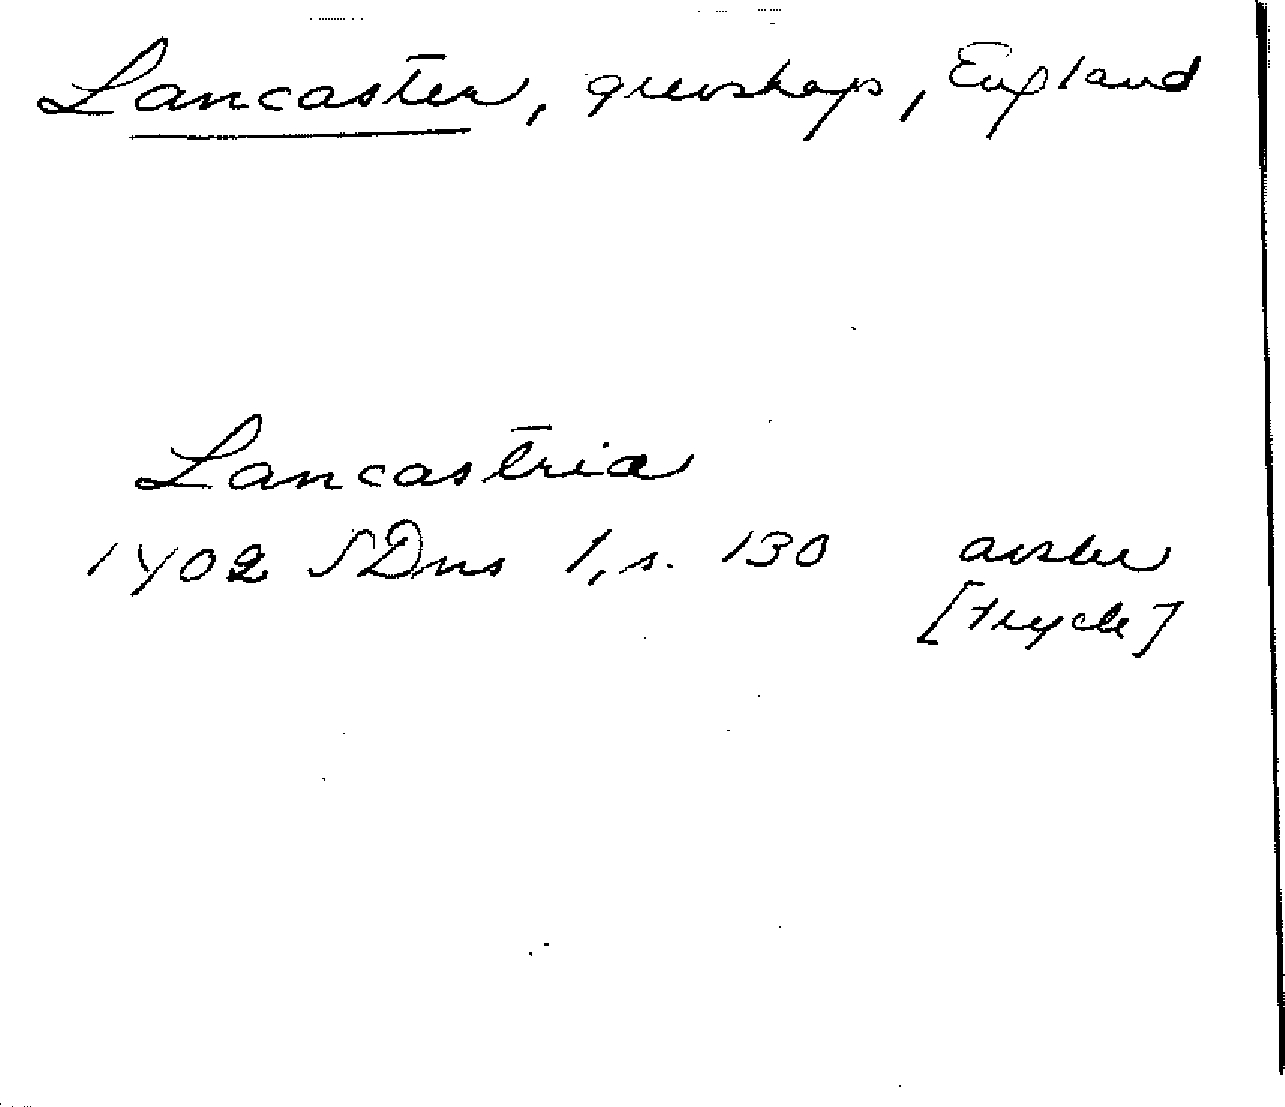 Lancaster, grevskap, England
Lancastria
1402 SDns 1, s. 130 avskr
[tryck]